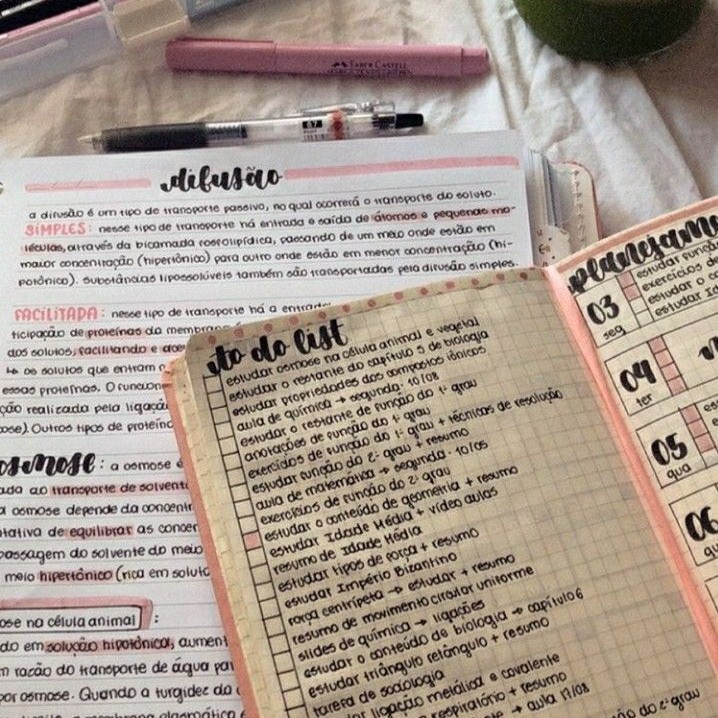 FABER CASTELL
difusão
a difusão é um tipo de transporte passivo, no qual ocorrerá o transporte do soluto.
SIMPLES: nesse tipo de transporte há entrada e saída de átomos e pequenas mo-
léculas, através da bicamada fosfolipídica, passando de um meio onde estão em
maior concentração (hipertônico) para outro onde estão em menor concentração (hi-
potônico). Substâncias lipossolúveis também são transportadas pela difusão simples.
FACILITADA: nesse tipo de transporte há a
ticipação de proteínas da
dos solutos, facilitando e
↳ os solutos que entram
essas proteínas. O
ção realizada pela ligação
Outros tipos de
osmose: a osmose é
ada ao transporte de
a osmose depende da
tativa de equilibrar as
passagem do solvente do meio
meio hipertônico (rica em
ose na célula animal :
do em solução hipotônica,
razão do transporte de água
por osmose. Quando a turgidez da
a membrana plasmática
to do list
estudar osmose na célula animal e vegetal
estudar o restante do capítulo 5 de biologia
estudar propriedades dos compostos iônicos
aula de química → segunda - 10/08
estudar o restante de função do 1º grau
anotações de função do 1º grau
exercícios de função do 1º grau + técnicas de resolução
estudar função do 2º grau + resumo
aula de matemática → segunda - 10/05
exercícios de função do 2º grau
estudar o conteúdo de geometria + resumo
estudar Idade Média + vídeo aulas
resumo de Idade Média
estudar tipos de força + resumo
estudar Império Bizantino
força centrípeta → estudar + resumo
resumo de movimento circular uniforme
slides de química → ligações
estudar o conteúdo de biologia → capítulo 6
estudar triângulo retângulo + resumo
tarefa de sociologia
ligação metálica e covalente
respiratório + resumo
→ aula 17/08
do 2º grau
03
seg
estudar
exercícios de
estudar o
estudar
04
ter
05
qua
06